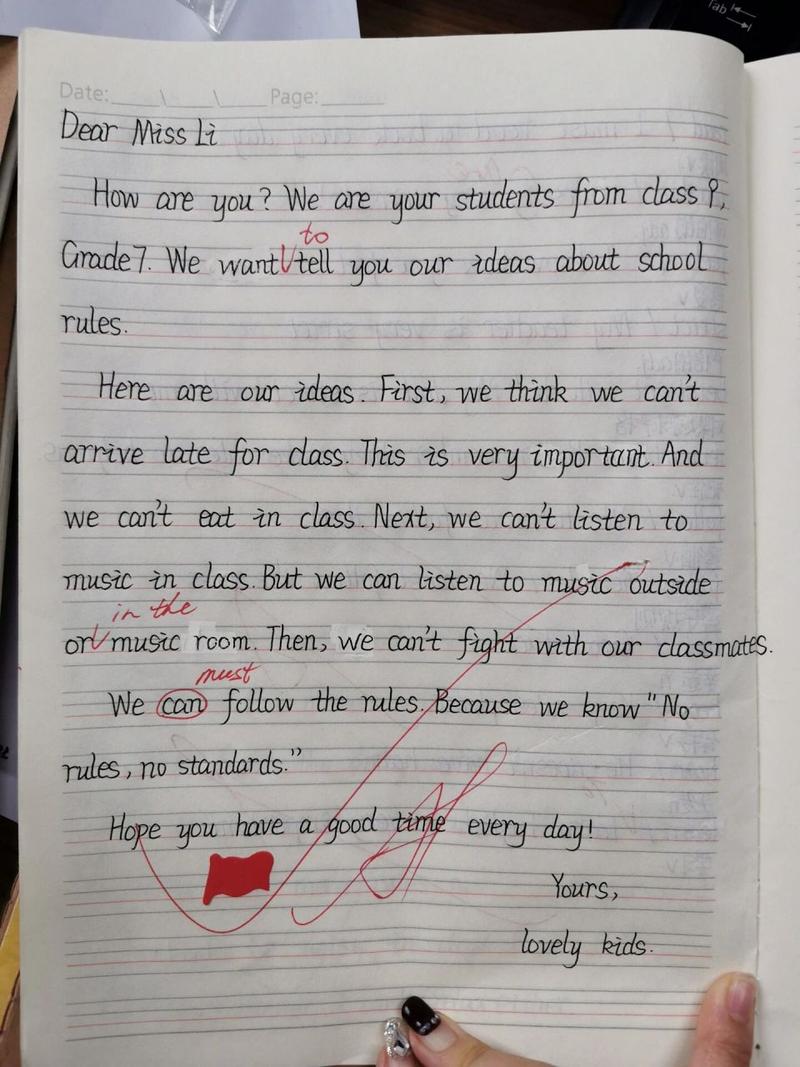 Tab
Date: \ \ Page:
Dear Miss Li
How are you? We are your students from class 9,
to
Grade7. We want tell you our ideas about school
rules.
Here are our ideas. First, we think we can't
arrive late for class. This is very important. And
we can't eat in class. Next, we can't listen to
music in class. But we can listen to music outside
in the
or music room. Then, we can't fight with our classmates.
must
We can follow the rules. Because we know "No
rules, no standards."
Hope you have a good time every day!
Yours,
lovely kids.